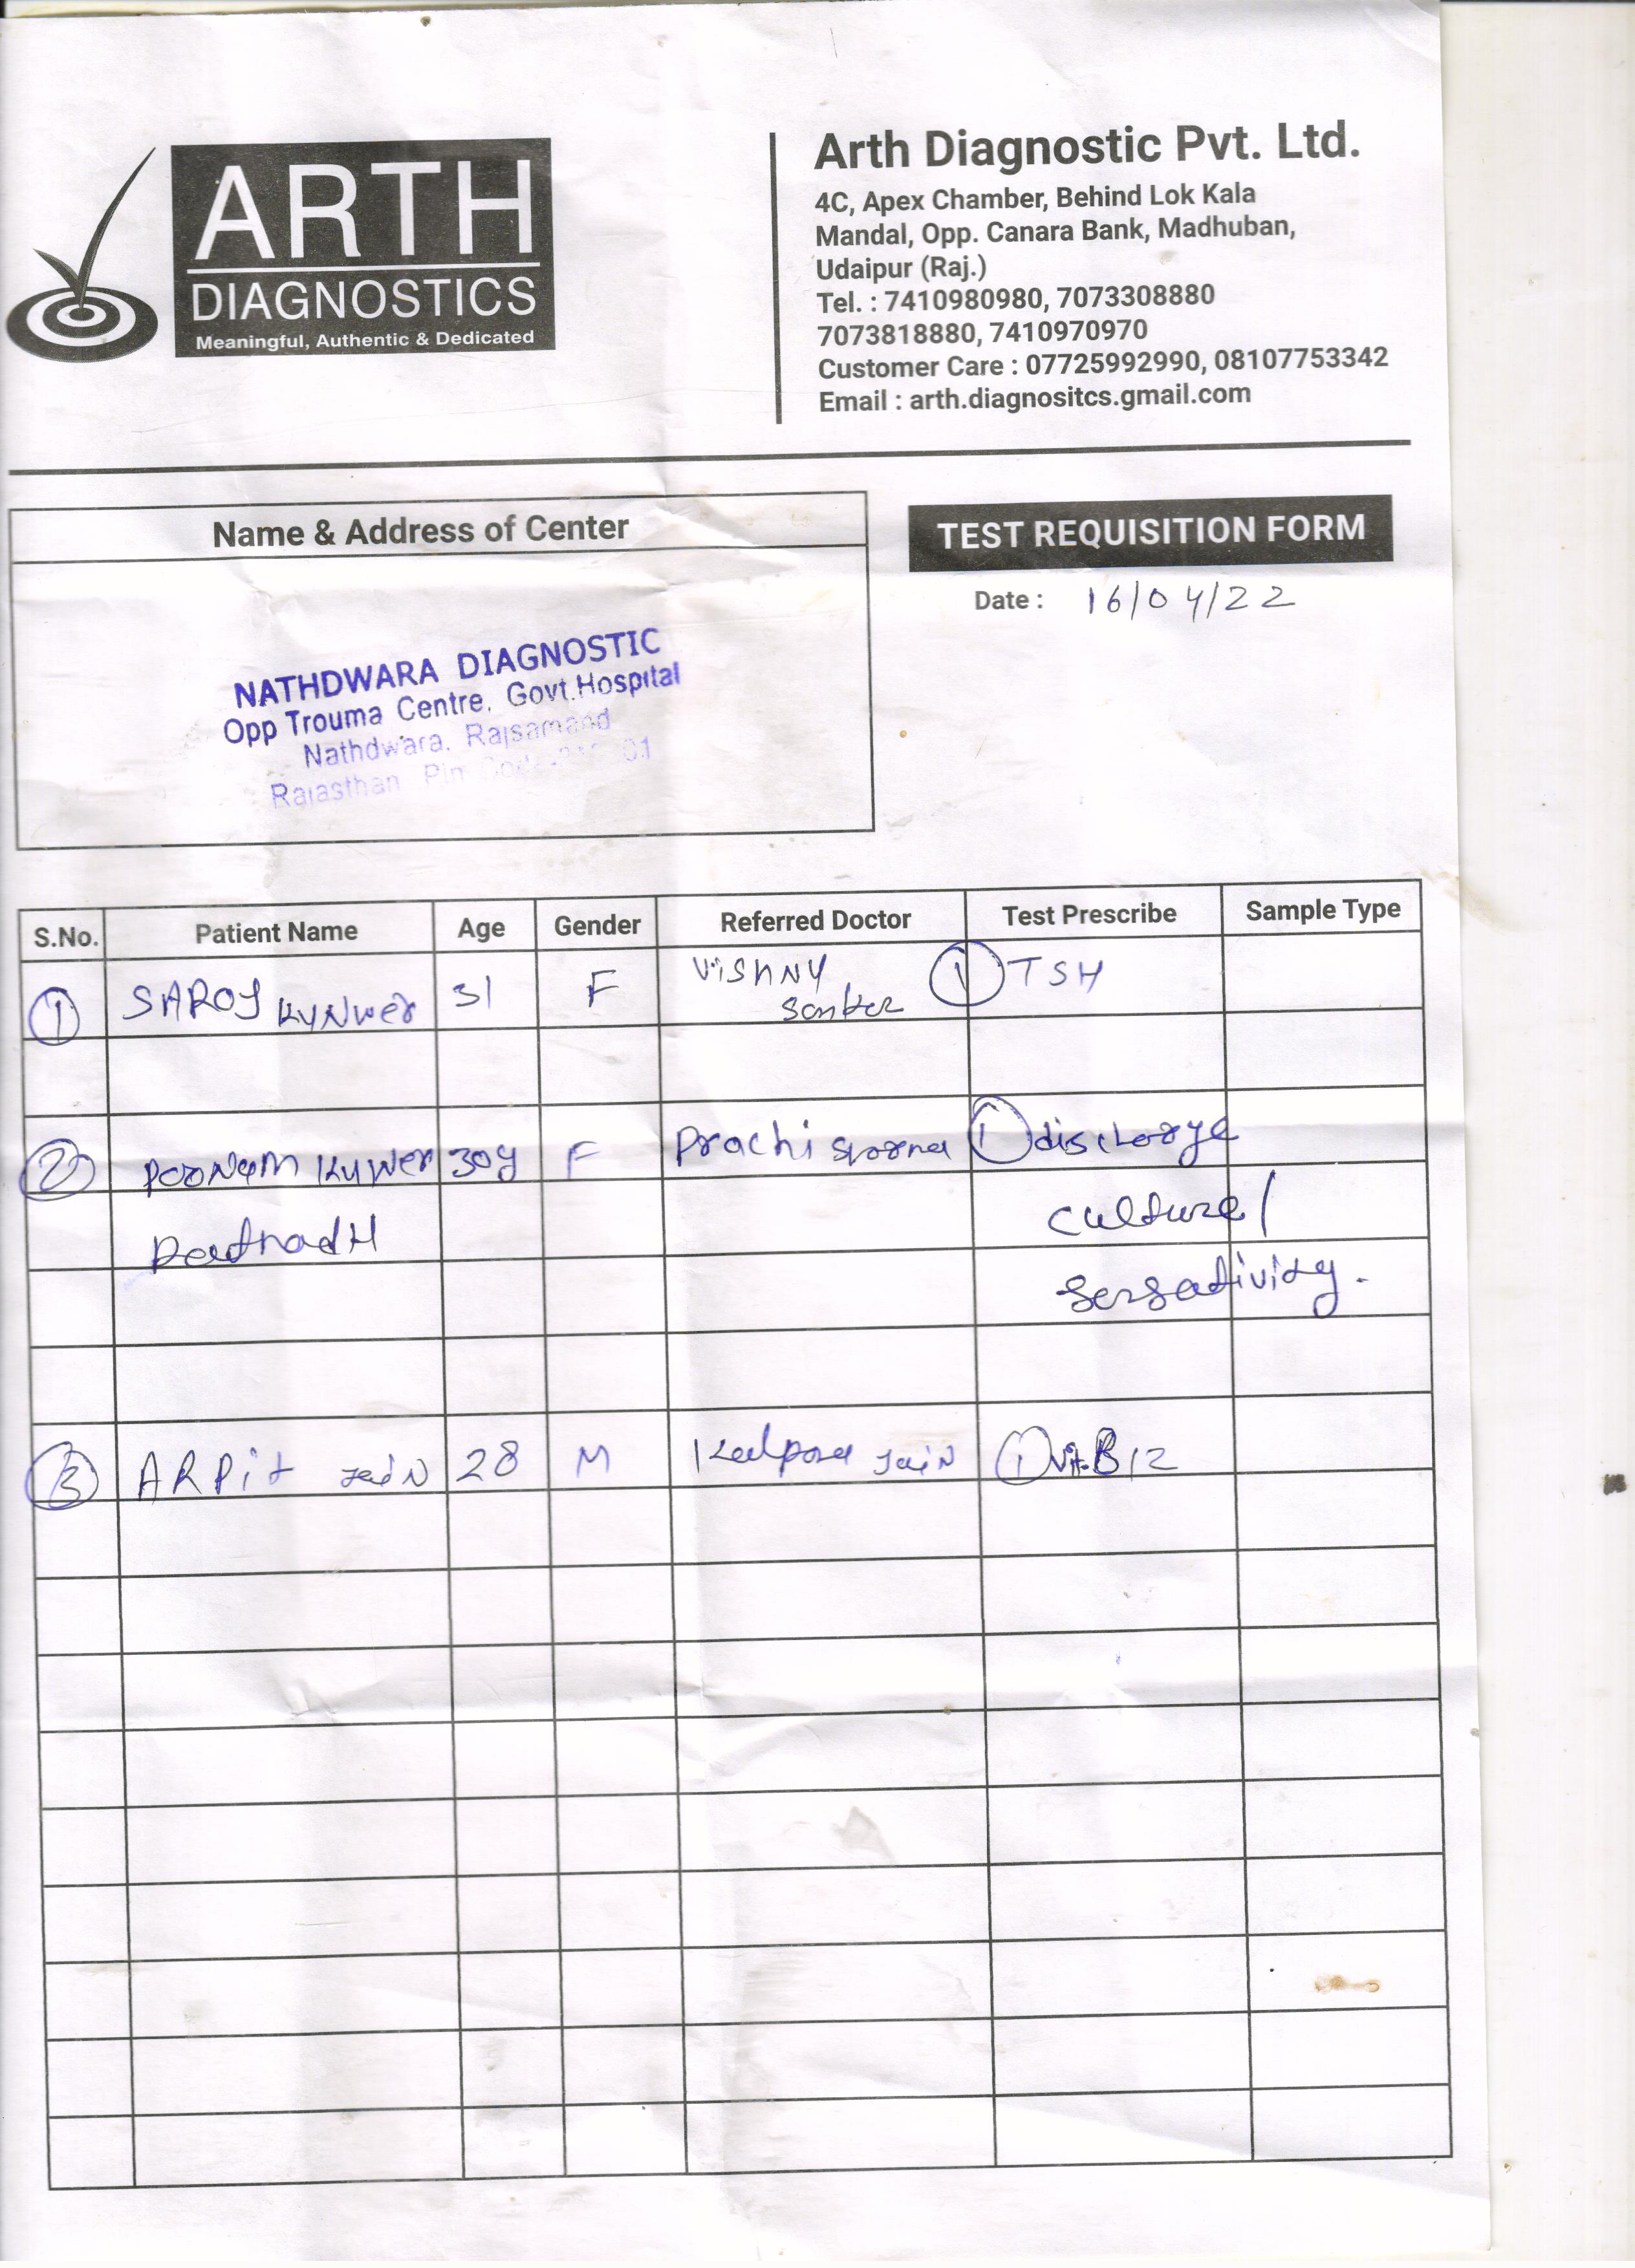 ARTH
DIAGNOSTICS
Meaningful, Authentic & Dedicated
Arth Diagnostic Pvt. Ltd.
4C, Apex Chamber, Behind Lok Kala
Mandal, Opp. Canara Bank, Madhuban,
Udaipur (Raj.)
Tel. : 7410980980, 7073308880
7073818880, 7410970970
Customer Care : 07725992990, 08107753342
Email : arth.diagnositcs.gmail.com
Name & Address of Center
TEST REQUISITION FORM
Date : 16/04/22
NATHDWARA DIAGNOSTIC
Opp Trouma Centre, Govt.Hospital
Nathdwara, Rajsamand
Rajasthan Pin Code
S.No. Patient Name Age Gender Referred Doctor Test Prescribe Sample Type
1 SAROJ KUNWER 31 F VISHNU 1 TSH
2 POONAM KUWER 30y F Prachi 1 discharge
culture/
sensativity.
3 ARPit Jain 28 M Kalpana Jain 1 Vit.B12